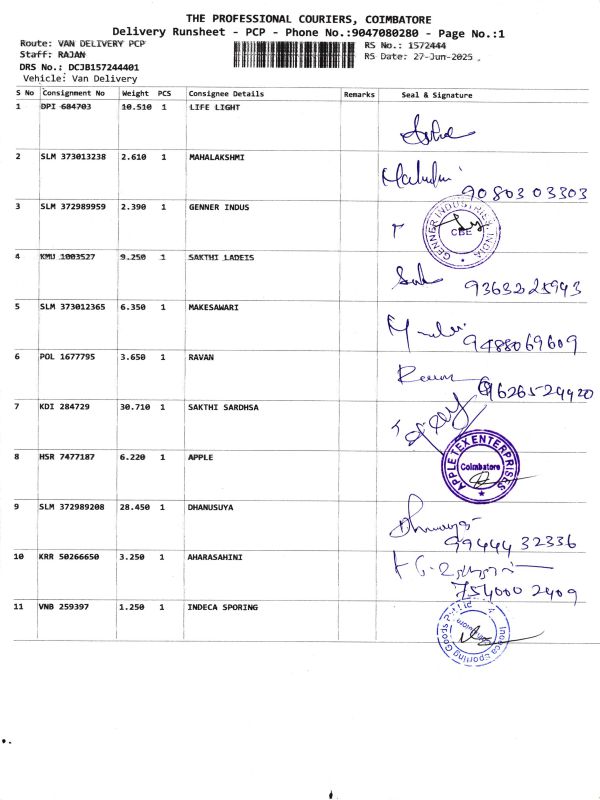 THE PROFESSIONAL COURIERS, COIMBATORE
Delivery Runsheet - PCP - Phone No.:9047080280 - Page No.:1
Route: VAN DELIVERY PCP
Staff: RAJAN
DRS No.: DCJB157244401
Vehicle: Van Delivery
RS No.: 1572444
RS Date: 27-Jun-2025
S No Consignment No Weight PCS Consignee Details Remarks Seal & Signature
1 DPI 684703 10.510 1 LIFE LIGHT
2 SLM 373013238 2.610 1 MAHALAKSHMI
9080303303
3 SLM 372989959 2.390 1 GENNER INDUS
GENNER INDUSTRIES INDIA
CBE
4 KMU 1003527 9.250 1 SAKTHI LADEIS
9363225943
5 SLM 373012365 6.350 1 MAKESAWARI
9488069609
6 POL 1677795 3.650 1 RAVAN
9626524920
7 KDI 284729 30.710 1 SAKTHI SARDHSA
8 HSR 7477187 6.220 1 APPLE
APPLE TEX ENTERPRISES
Coimbatore
9 SLM 372989208 28.450 1 DHANUSUYA
9944432336
10 KRR 50266650 3.250 1 AHARASAHINI
754000 2409
11 VNB 259397 1.250 1 INDECA SPORING
Indeca Sporting Goods